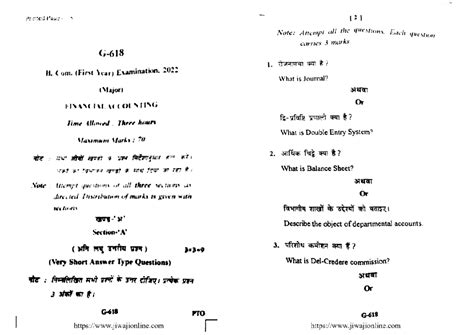 G-618
B. Com. (First Year) Examination, 2022
(Major)
FINANCIAL ACCOUNTING
Time Allowed : Three hours
Maximum Marks : 70
नोट : सभी तीनों खण्डों के प्रश्न निर्देशानुसार हल करें।
अंकों का विभाजन खण्डों के साथ दिया जा रहा है।
Note : Attempt questions of all three sections as
directed. Distribution of marks is given with
sections.
खण्ड-'अ'
Section-'A'
( अति लघु उत्तरीय प्रश्न ) 3×3=9
(Very Short Answer Type Questions)
नोट : निम्नलिखित सभी प्रश्नों के उत्तर दीजिए। प्रत्येक प्रश्न
3 अंकों का है।
G-618 PTO
https://www.jiwajionline.com
[ 2 ]
Note: Attempt all the questions. Each question
carries 3 marks
1. रोजनामचा क्या है ?
What is Journal?
अथवा
Or
द्वि-प्रविष्टि प्रणाली क्या है ?
What is Double Entry System?
2. आर्थिक चिट्ठे क्या है ?
What is Balance Sheet?
अथवा
Or
विभागीय खातों के उद्देश्यों को बताइए।
Describe the object of departmental accounts.
3. परिशोध कमीशन क्या हैं ?
What is Del-Credere commission?
अथवा
Or
G-618
https://www.jiwajionline.com